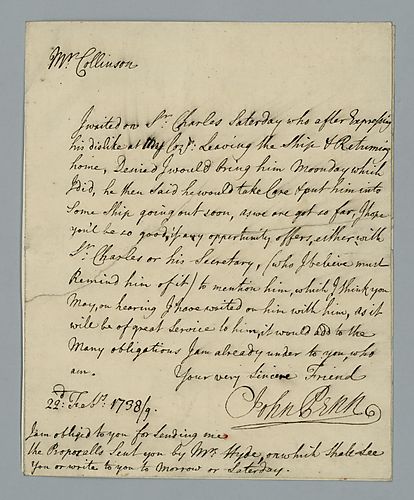 Mr. Collinson
I waited on Sr. Charles Saterday who after Expressing
his dislike at My Coz:s. Leaving the Ship & Returning
home, Desired I would bring him Moonday which
I did, he then Said he would take Care & put him into
Some Ship going out soon, as we are got so far, I hope
you'l be so good, if any opportunity offers, either with
Sr. Charles or his Secretary, (who I believe must
Remind him of it) to mention him, which I think you
May, on hearing I have waited on him with him, as it
will be of great Service to him, it would add to the
Many obligations I am already under to you, who
am. Your very Sincere Friend
22d: Febr. 1738/9. John Penn
I am oblig'd to you for sending me
the Proposalls Sent you by Mr. Hyde, on which shale See
You or write to you to Morrow or Saterday.